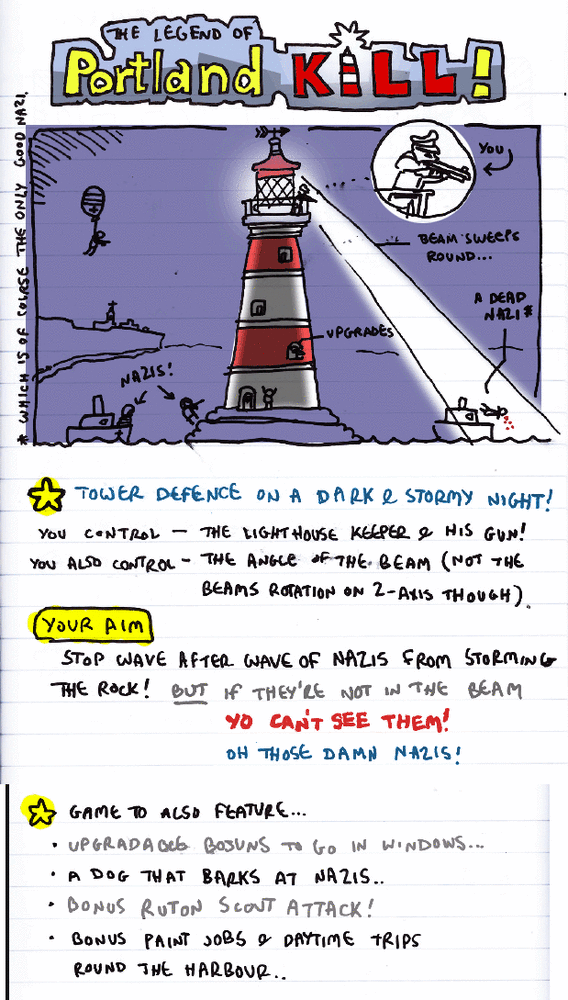 THE LEGEND OF
Portland KILL!
* WHICH IS OF COURSE THE ONLY GOOD NAZI.
YOU
BEAM SWEEPS
ROUND...
A DEAD
NAZI*
UPGRADES
NAZIS!
TOWER DEFENCE ON A DARK & STORMY NIGHT!
YOU CONTROL – THE LIGHTHOUSE KEEPER & HIS GUN!
YOU ALSO CONTROL – THE ANGLE OF THE BEAM (NOT THE
BEAMS ROTATION ON Z-AXIS THOUGH).
YOUR AIM
STOP WAVE AFTER WAVE OF NAZIS FROM STORMING
THE ROCK! BUT IF THEY'RE NOT IN THE BEAM
YO CAN'T SEE THEM!
OH THOSE DAMN NAZIS!
GAME TO ALSO FEATURE...
• UPGRADABLE BOSUNS TO GO IN WINDOWS...
• A DOG THAT BARKS AT NAZIS..
• BONUS RUTON SCOUT ATTACK!
• BONUS PAINT JOBS & DAYTIME TRIPS
ROUND THE HARBOUR..